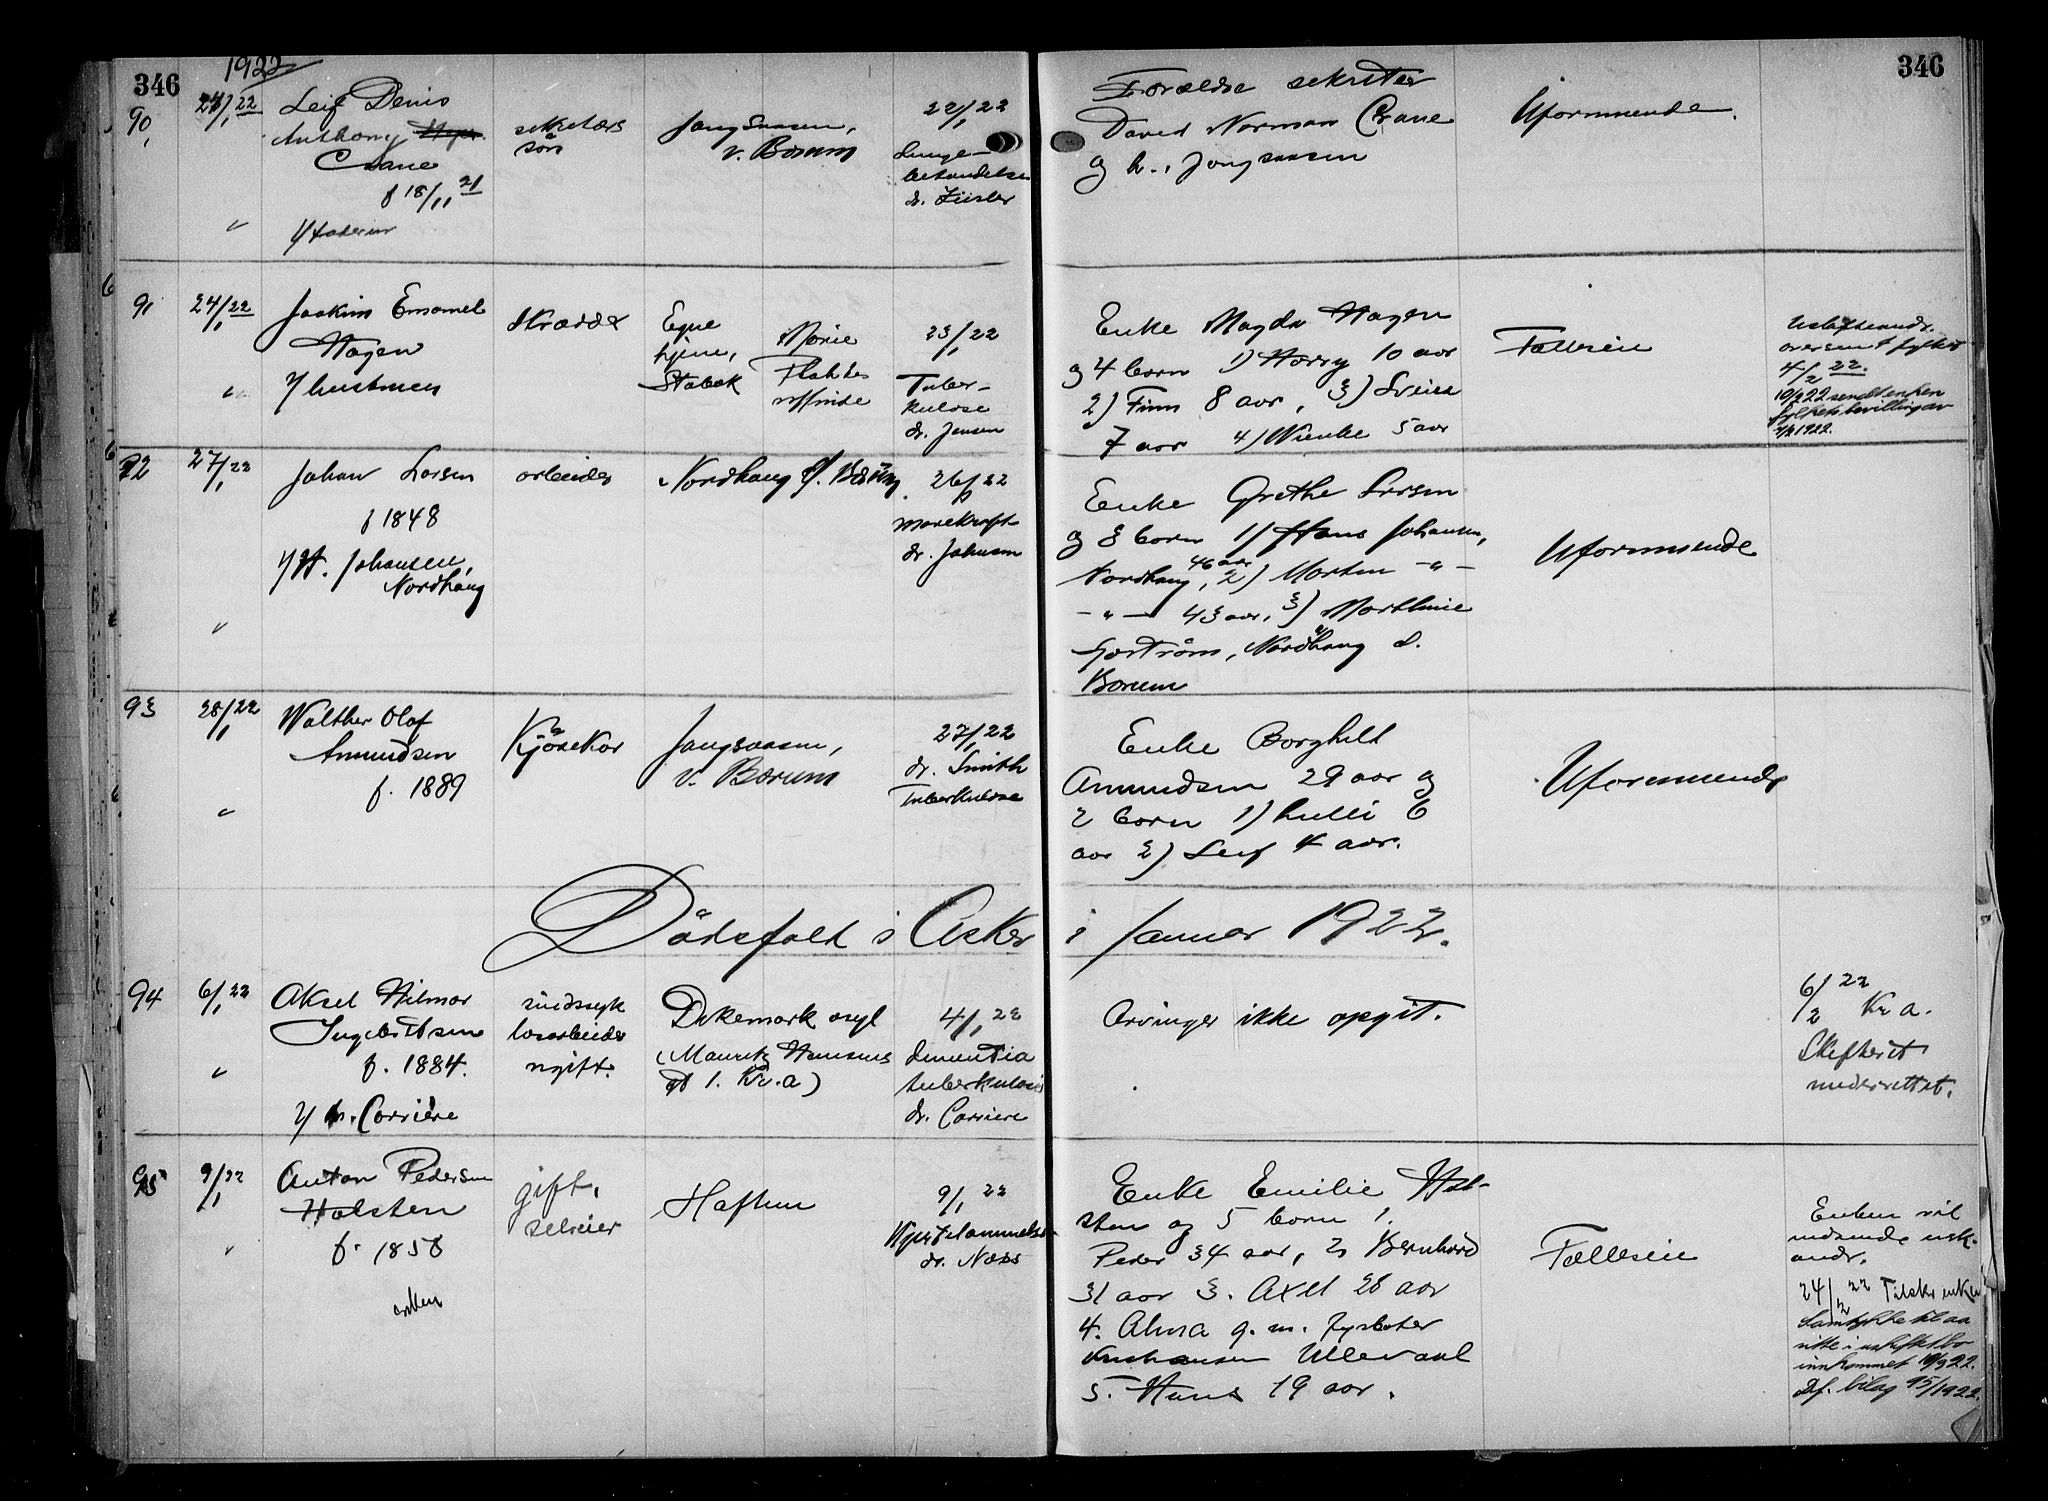 346
1922
346
90
24/1 22
Leif Denis
Anthony
Crane
f 18/11 21
sekretærs
søn
Jongsaasen,
v. Bærum
22/1 22
Lunge-
betændelse
Forældre sekretær
David Norman Crane
og h., Jongsaasen
Uformuende.
91
24/1 22
Joakim Emanuel
Hagen
skrædder
Egne
hjem,
Stabæk
Marie
23/1 22
Tuber-
kulose
dr. Jensen
Enke Magda Hagen
og 4 børn 1) Harry 10 aar
2) Finn 8 aar, 3)
7 aar 4) Wienke 5 aar
Fælleseie
4/2 22.
92
27/1 22
Johan Larsen
f 1848
v/ H. Johansen,
Nordhaug
arbeider
Nordhaug Ø. Bærum
26/1 22
marekraft
dr. Johnsen
Enke Grethe Larsen
og 3 børn 1) Hans Johansen,
Nordhaug, 46 aar 2) Morten -"-
-"- 43 aar, 3) Marthine
Nordhaug Ø.
Bærum
Uformuende
93
28/1 22
Walther Olaf
Amundsen
f. 1889
Kjørekar
Jongsaasen,
v. Bærum
27/1 22
dr. Smith
Tuberkulose
Enke Borghild
Amundsen 29 aar og
2 børn 1) Lulli 6
aar 2) Leif 4 aar.
Uformuende
Dødsfald i Asker i Januar 1922.
94
6/1 22
Aksel Hilmar
Ingebretsen
f. 1884.
v/ dr. Carriere
sindssyk
løsarbeider
ugift.
Dikemark asyl
(Mauritz Hansens
gt 1. Kr.a)
4/1 22
dementia
tuberkulosis
dr. Carriere
Arvinger ikke opgit.
6/2 22 Kr.a.
Skifteret
underrettet.
95
9/1 22
Anton Pedersen
Holsten
f. 1856
enken
gift,
selveier
Haflun
9/1 22
Hjertelammelse
dr. Næss
Enke Emilie Hol-
sten og 5 børn 1.
Peder 34 aar, 2. Bernhard
31 aar 3. Axel 28 aar
4. Alma g. m.
Kristiansen Ullevaal
5. Hans 19 aar.
Fælleseie
Enken vil
indsende usk.
andr.
24/2 22 Tilskr. enken
samtykke til aa
sitte i uskiftet bo
innkommet
Df. bilag 95/1922.